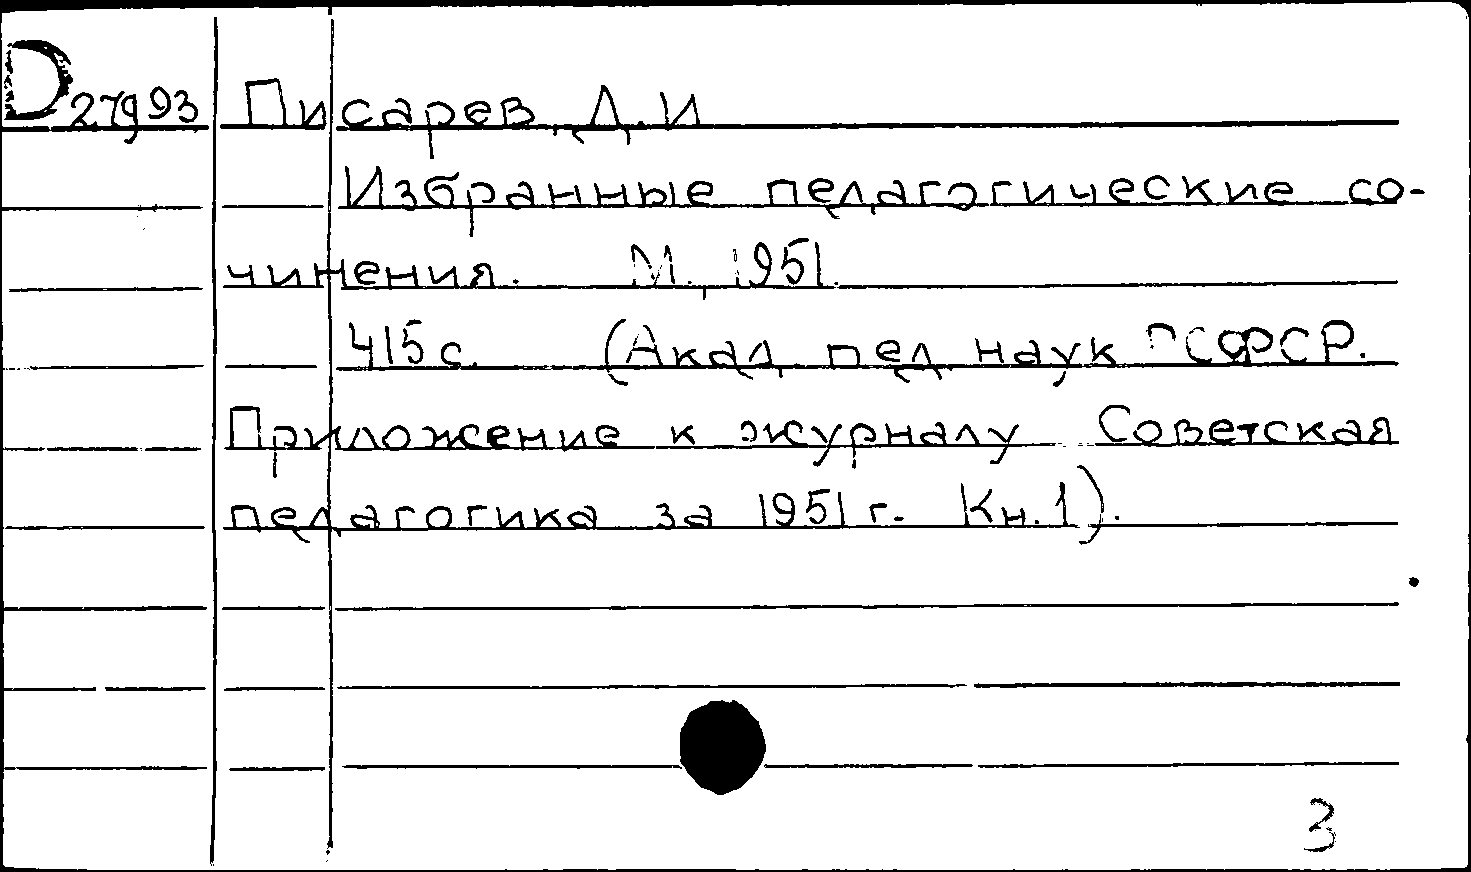 D 27993 Писарев, Д. И
Избранные педагогические со-
чинения. М., 1951.
415 с. (Акад. пед. наук РСФСР.
Приложение к журналу Советская
педагогика за 1951 г. Кн. 1).
3